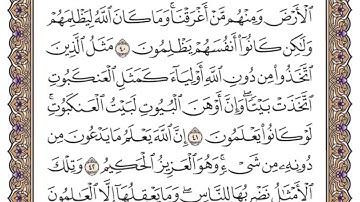 ٱلۡأَرۡضَ وَمِنۡهُم مَّنۡ أَغۡرَقۡنَاۚ وَمَا كَانَ ٱللَّهُ لِيَظۡلِمَهُمۡ
وَلَٰكِن كَانُوٓاْ أَنفُسَهُمۡ يَظۡلِمُونَ ٤٠ مَثَلُ ٱلَّذِينَ
ٱتَّخَذُواْ مِن دُونِ ٱللَّهِ أَوۡلِيَآءَ كَمَثَلِ ٱلۡعَنكَبُوتِ
ٱتَّخَذَتۡ بَيۡتٗاۖ وَإِنَّ أَوۡهَنَ ٱلۡبُيُوتِ لَبَيۡتُ ٱلۡعَنكَبُوتِۚ
لَوۡ كَانُواْ يَعۡلَمُونَ ٤١ إِنَّ ٱللَّهَ يَعۡلَمُ مَا يَدۡعُونَ مِن
دُونِهِۦ مِن شَيۡءٖۚ وَهُوَ ٱلۡعَزِيزُ ٱلۡحَكِيمُ ٤٢ وَتِلۡكَ
ٱلۡأَمۡثَٰلُ نَضۡرِبُهَا لِلنَّاسِۖ وَمَا يَعۡقِلُهَآ إِلَّا ٱلۡعَٰلِمُونَ